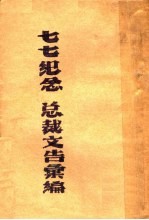 七七纪念 总裁文告彙編